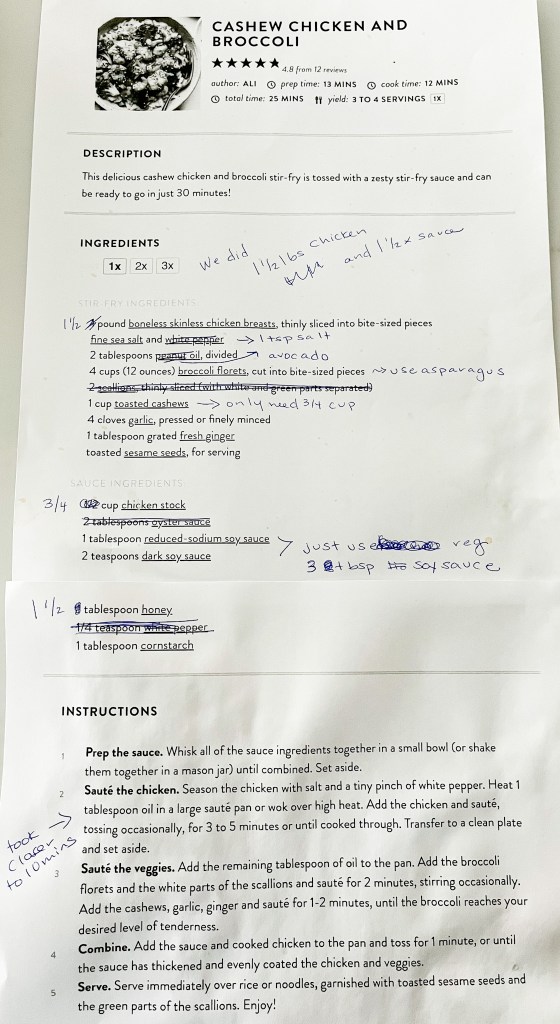 CASHEW CHICKEN AND
BROCCOLI
★★★★★ 4.8 from 12 reviews
author: ALI prep time: 13 MINS cook time: 12 MINS
total time: 25 MINS yield: 3 TO 4 SERVINGS 1X
DESCRIPTION
This delicious cashew chicken and broccoli stir-fry is tossed with a zesty stir-fry sauce and can
be ready to go in just 30 minutes!
INGREDIENTS
1x 2x 3x
We did 1 1/2 lbs chicken and 1 1/2 x sauce
STIR-FRY INGREDIENTS:
1 1/2 pound boneless skinless chicken breasts, thinly sliced into bite-sized pieces
fine sea salt and white pepper → 1 tsp salt
2 tablespoons peanut oil, divided → avocado
4 cups (12 ounces) broccoli florets, cut into bite-sized pieces → use asparagus
2 scallions, thinly sliced (with white and green parts separated)
1 cup toasted cashews → only need 3/4 cup
4 cloves garlic, pressed or finely minced
1 tablespoon grated fresh ginger
toasted sesame seeds, for serving
SAUCE INGREDIENTS:
3/4 cup chicken stock
2 tablespoons oyster sauce
1 tablespoon reduced-sodium soy sauce
2 teaspoons dark soy sauce
just use reg
3 tbsp soy sauce
1 1/2 tablespoon honey
1/4 teaspoon white pepper
1 tablespoon cornstarch
INSTRUCTIONS
1 Prep the sauce. Whisk all of the sauce ingredients together in a small bowl (or shake
them together in a mason jar) until combined. Set aside.
2 Sauté the chicken. Season the chicken with salt and a tiny pinch of white pepper. Heat 1
tablespoon oil in a large sauté pan or wok over high heat. Add the chicken and sauté,
tossing occasionally, for 3 to 5 minutes or until cooked through. Transfer to a clean plate
and set aside.
took →
closer
to 10 mins
3 Sauté the veggies. Add the remaining tablespoon of oil to the pan. Add the broccoli
florets and the white parts of the scallions and sauté for 2 minutes, stirring occasionally.
Add the cashews, garlic, ginger and sauté for 1-2 minutes, until the broccoli reaches your
desired level of tenderness.
4 Combine. Add the sauce and cooked chicken to the pan and toss for 1 minute, or until
the sauce has thickened and evenly coated the chicken and veggies.
5 Serve. Serve immediately over rice or noodles, garnished with toasted sesame seeds and
the green parts of the scallions. Enjoy!